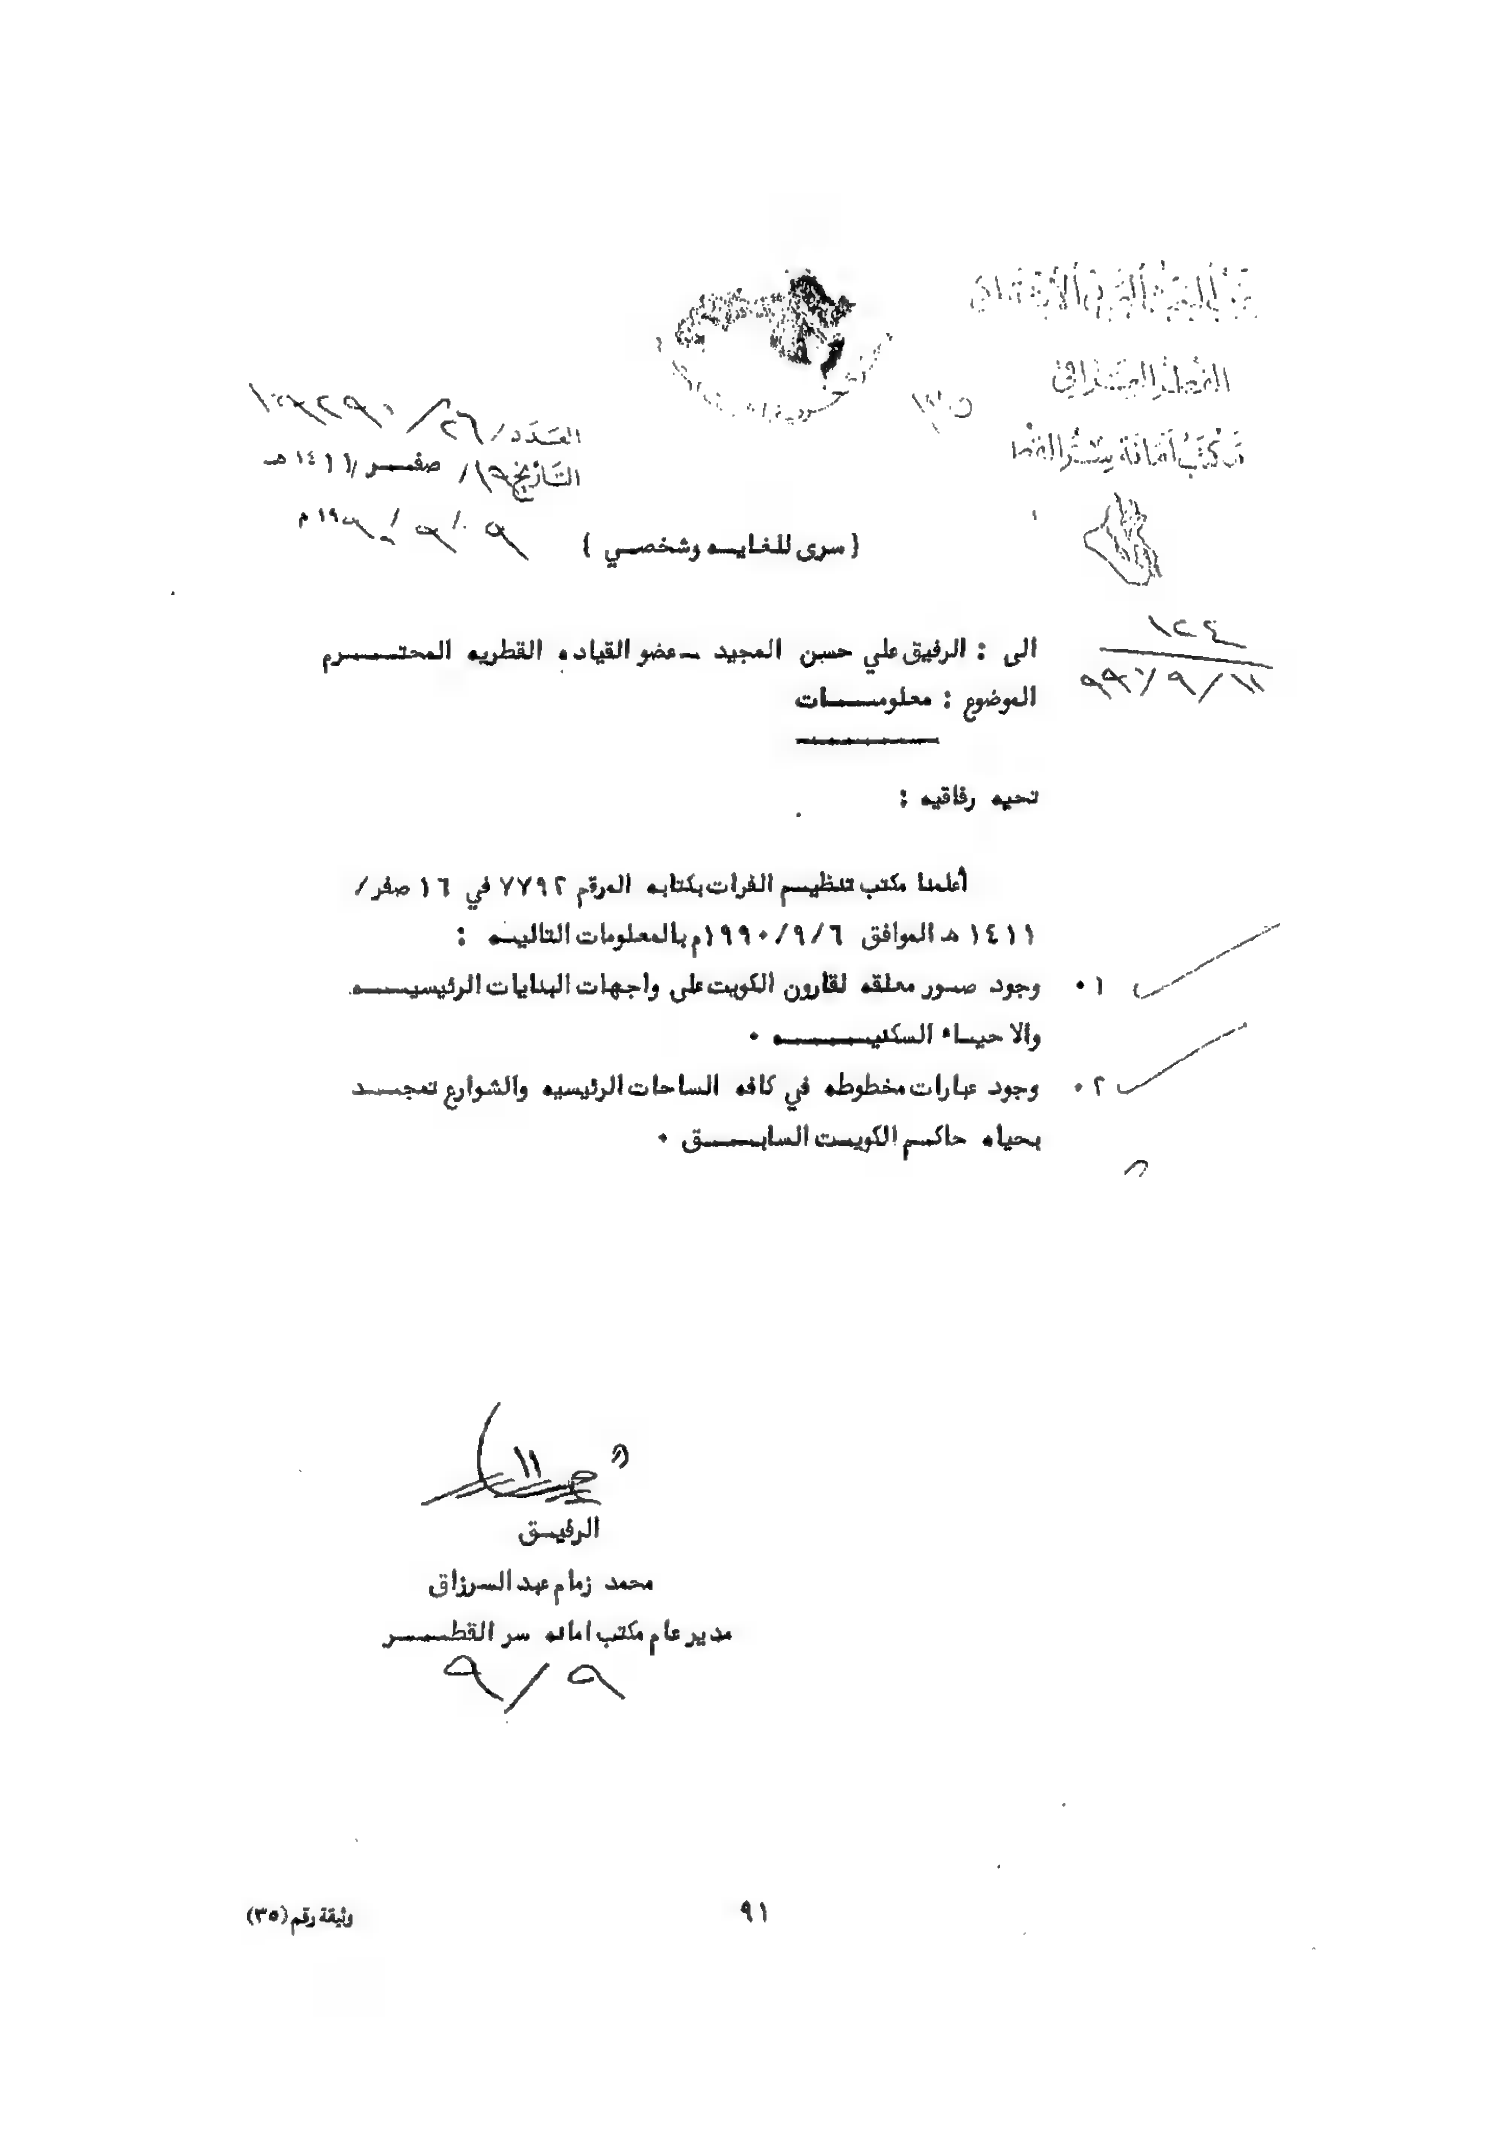 حزب البعث العربي الاشتراكي
القطر العراقي
مكتب أمانة سر القطر
العدد / ٢٦ /
التاريخ / ١٩ / صفر / ١٤١١ هـ
٩ / ٩ / ١٩٩٠ م
( سرى للغايه وشخصي )
١٢٤
١١ / ٩ / ٩٩٠
الى : الرفيق علي حسن المجيد ــ عضو القياده القطريه المحتـــرم
الموضوع : معلومــــات
تحيه رفاقيه :
أعلمنا مكتب تنظيم الفرات بكتابه المرقم ٧٧٩٢ في ١٦ صفر /
١٤١١ هـ الموافق ١٩٩٠/٩/٦م بالمعلومات التاليه :
١ ٠ وجود صور معلقه لقارون الكويت على واجهات البنايات الرئيسيـــه
والاحياء السكنيـــــه ٠
٢ ٠ وجود عبارات مخطوطه في كافه الساحات الرئيسيه والشوارع تمجـــد
بحياه حاكم الكويت السابـــق ٠
الرفيـق
محمد زمام عبد السرزاق
مدير عام مكتب امانه سر القطـــر
٩ / ٩
٩١
وثيقة رقم (٣٥)